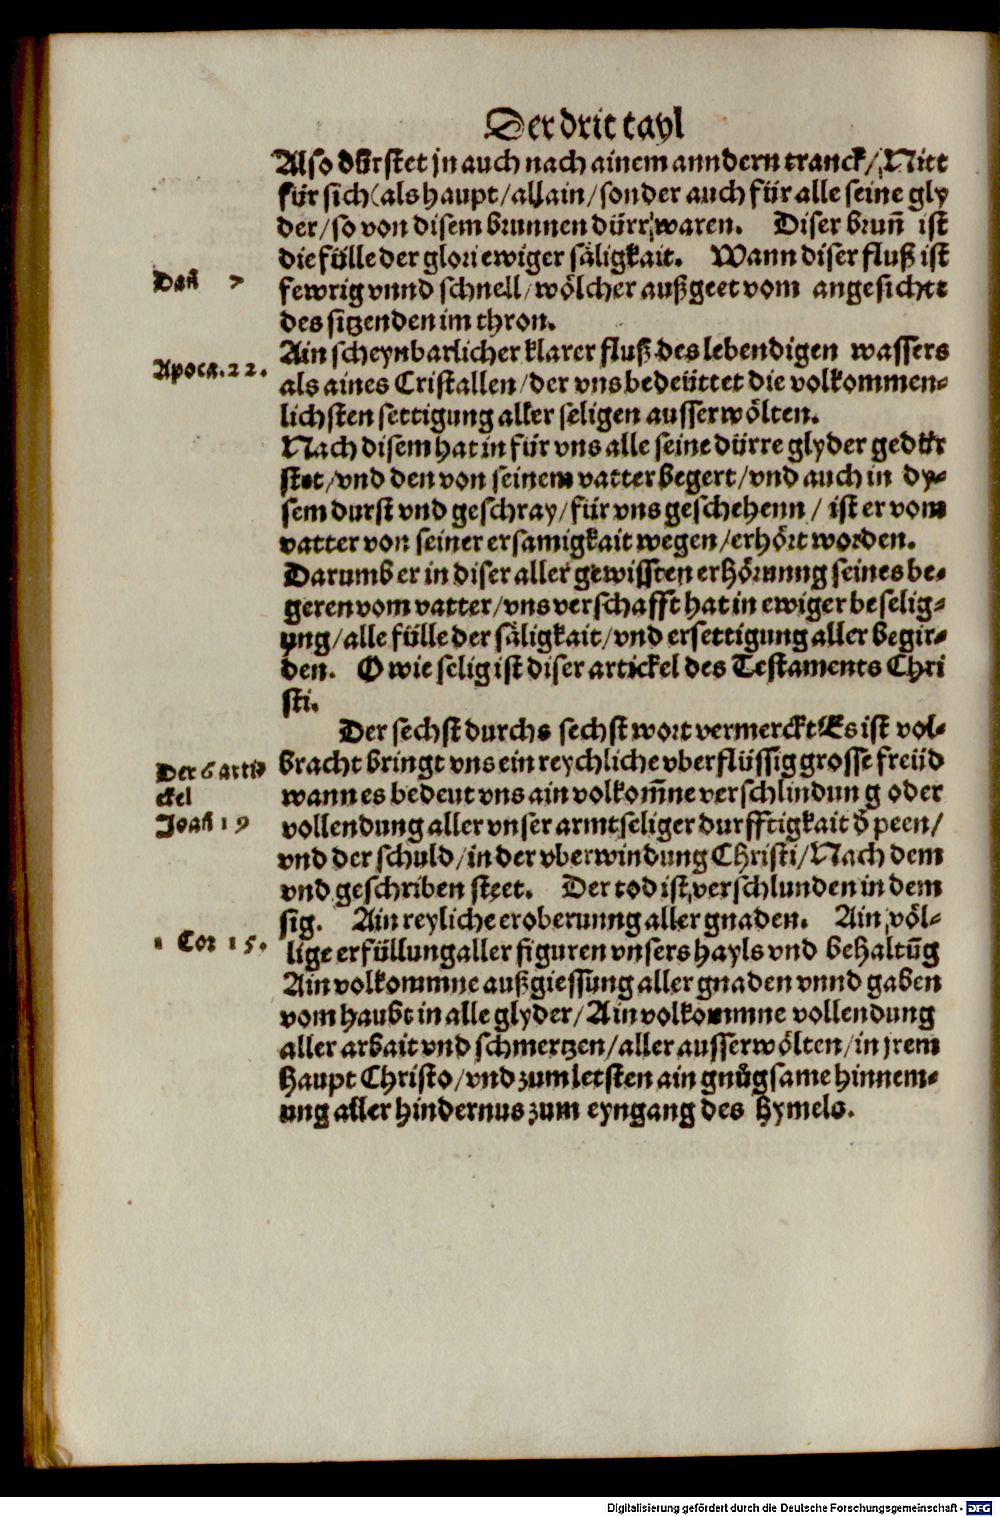 Der drit tayl
Also dürstet jn auch nach ainem anndern tranck/ Nitt
für sich (als haupt/ allain/ sonder auch für alle seine gly
der/ so von disem brunnen dürr waren. Diser brun̄ ist
die fülle der glori ewiger säligkait. Wann diser fluß ist
Dan̄ 7
fewrig vnnd schnell/ wölcher außgeet vom angesichte
des sitzenden im thron.
Ain scheynbarlicher klarer fluß des lebendigen wassers
Apoca. 22.
als aines Cristallen/ der vns bedeüttet die volkommen-
lichsten settigung aller seligen ausserwölten.
Nach disem hat in für vns alle seine dürre glyder gedür
stet/ vnd den von seinem vatter begert/ vnd auch in dy-
sem durst vnd geschray/ für vns geschehenn/ ist er vom
vatter von seiner ersamigkait wegen/ erhört worden.
Darumb er in diser aller gewissten erhörunng seines be-
geren vom vatter/ vns verschafft hat in ewiger beselig-
ung/ alle fülle der säligkait/ vnd ersettigung aller begir-
den. O wie selig ist diser artickel des Testaments Chri
sti.
Der sechst durchs sechst wort vermerckt Es ist vol-
Der 6 arti-
ckel
bracht bringt vns ein reychliche vberflüssig grosse freüd
wann es bedeut vns ain volkom̄ne verschlindung oder
Joan̄ 19
vollendung aller vnser armtseliger durfftigkait d̄ peen/
vnd der schuld/ in der vberwindung Christi/ Nach dem
vnd geschriben steet. Der tod ist verschlunden in dem
sig. Ain reyliche eroberunng aller gnaden. Ain völ-
1 Cor 15.
lige erfüllung aller figuren vnsers hayls vnd behaltūg
Ain volkommne außgiessung aller gnaden vnnd gaben
vom haubt in alle glyder/ Ain volkommne vollendung
aller arbait vnd schmertzen/ aller ausserwölten/ in jrem
haupt Christo/ vnd zum letsten ain gnůgsame hinnem-
ung aller hindernus zum eyngang des hymels.
Digitalisierung gefördert durch die Deutsche Forschungsgemeinschaft - DFG